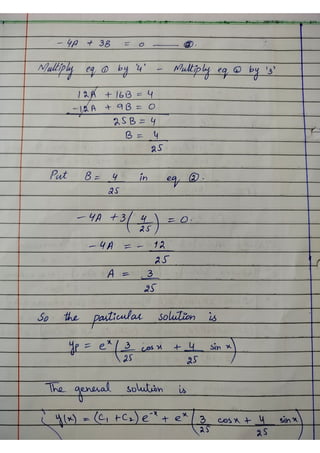 - 4A + 3B = 0 —— ②.
Multiply eq ① by '4' - Multiply eq ② by '3'
12A + 16B = 4
-12A + 9B = 0
25B = 4
B = 4/25
Put B = 4/25 in eq ②.
- 4A + 3(4/25) = 0.
- 4A = - 12/25
A = 3/25
So the particular solution is
yp = eˣ(3/25 cos x + 4/25 sin x)
The general solution is
y(x) = (C₁ + C₂) e⁻ˣ + eˣ(3/25 cos x + 4/25 sin x)